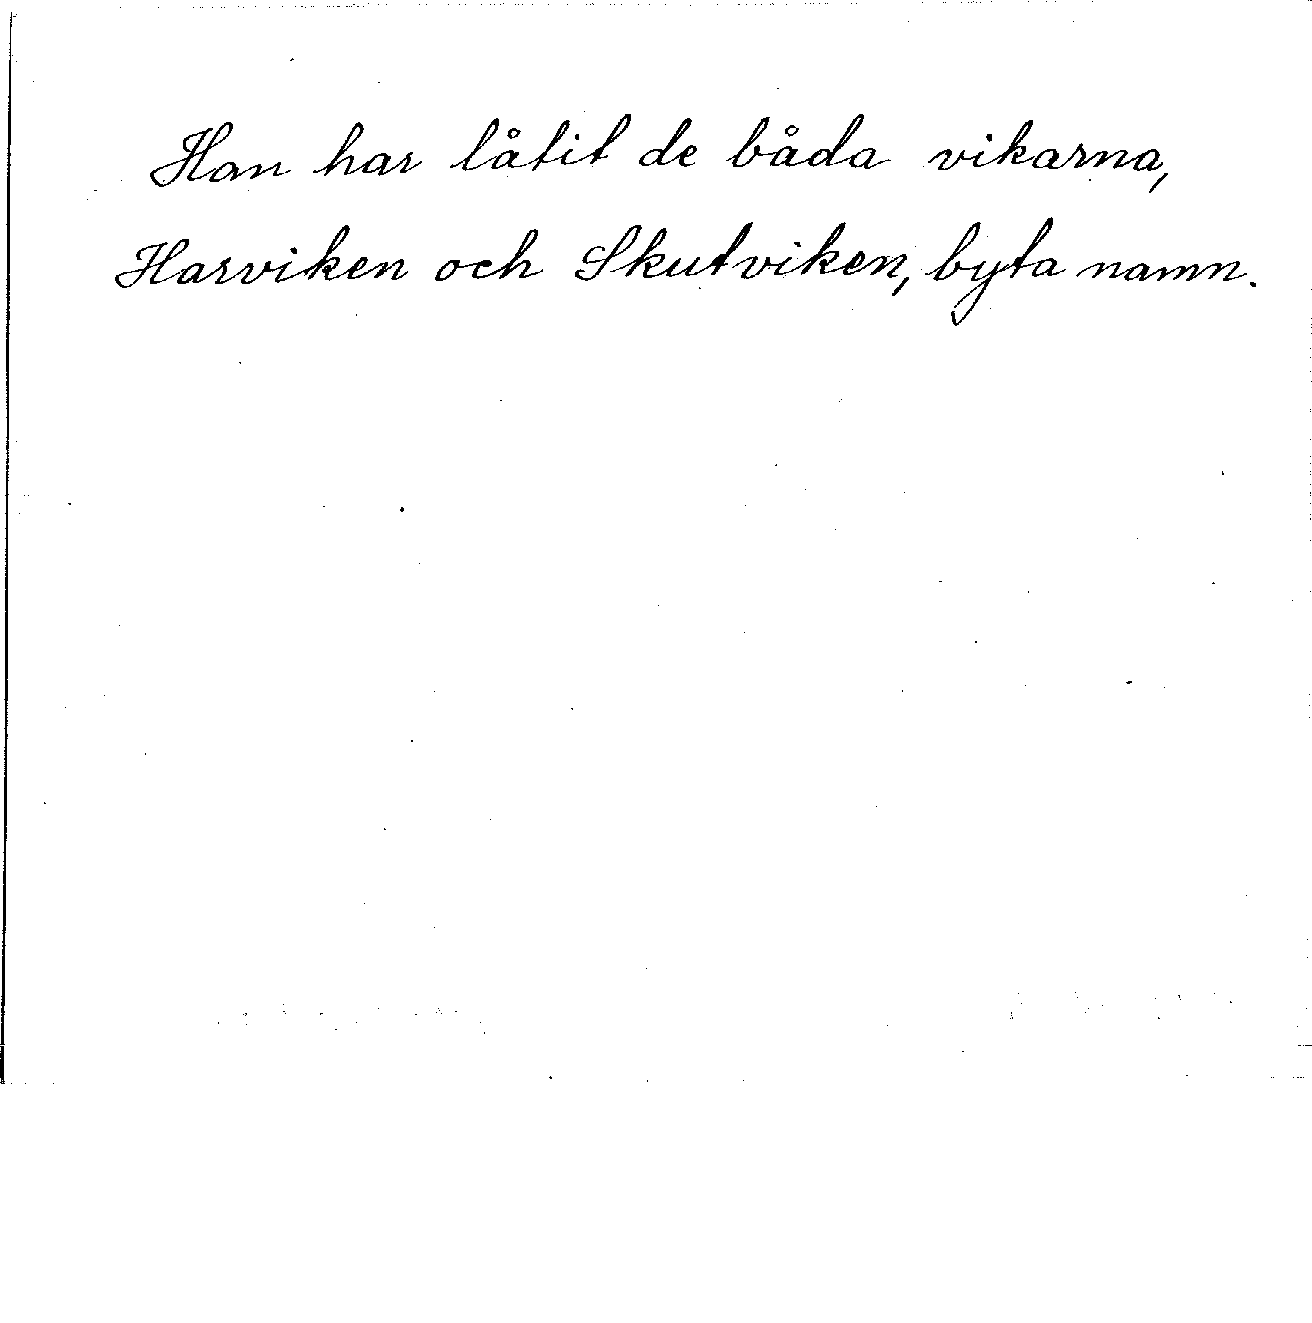 Han har låtit de båda vikarna,
Harviken och Skutviken, byta namn.